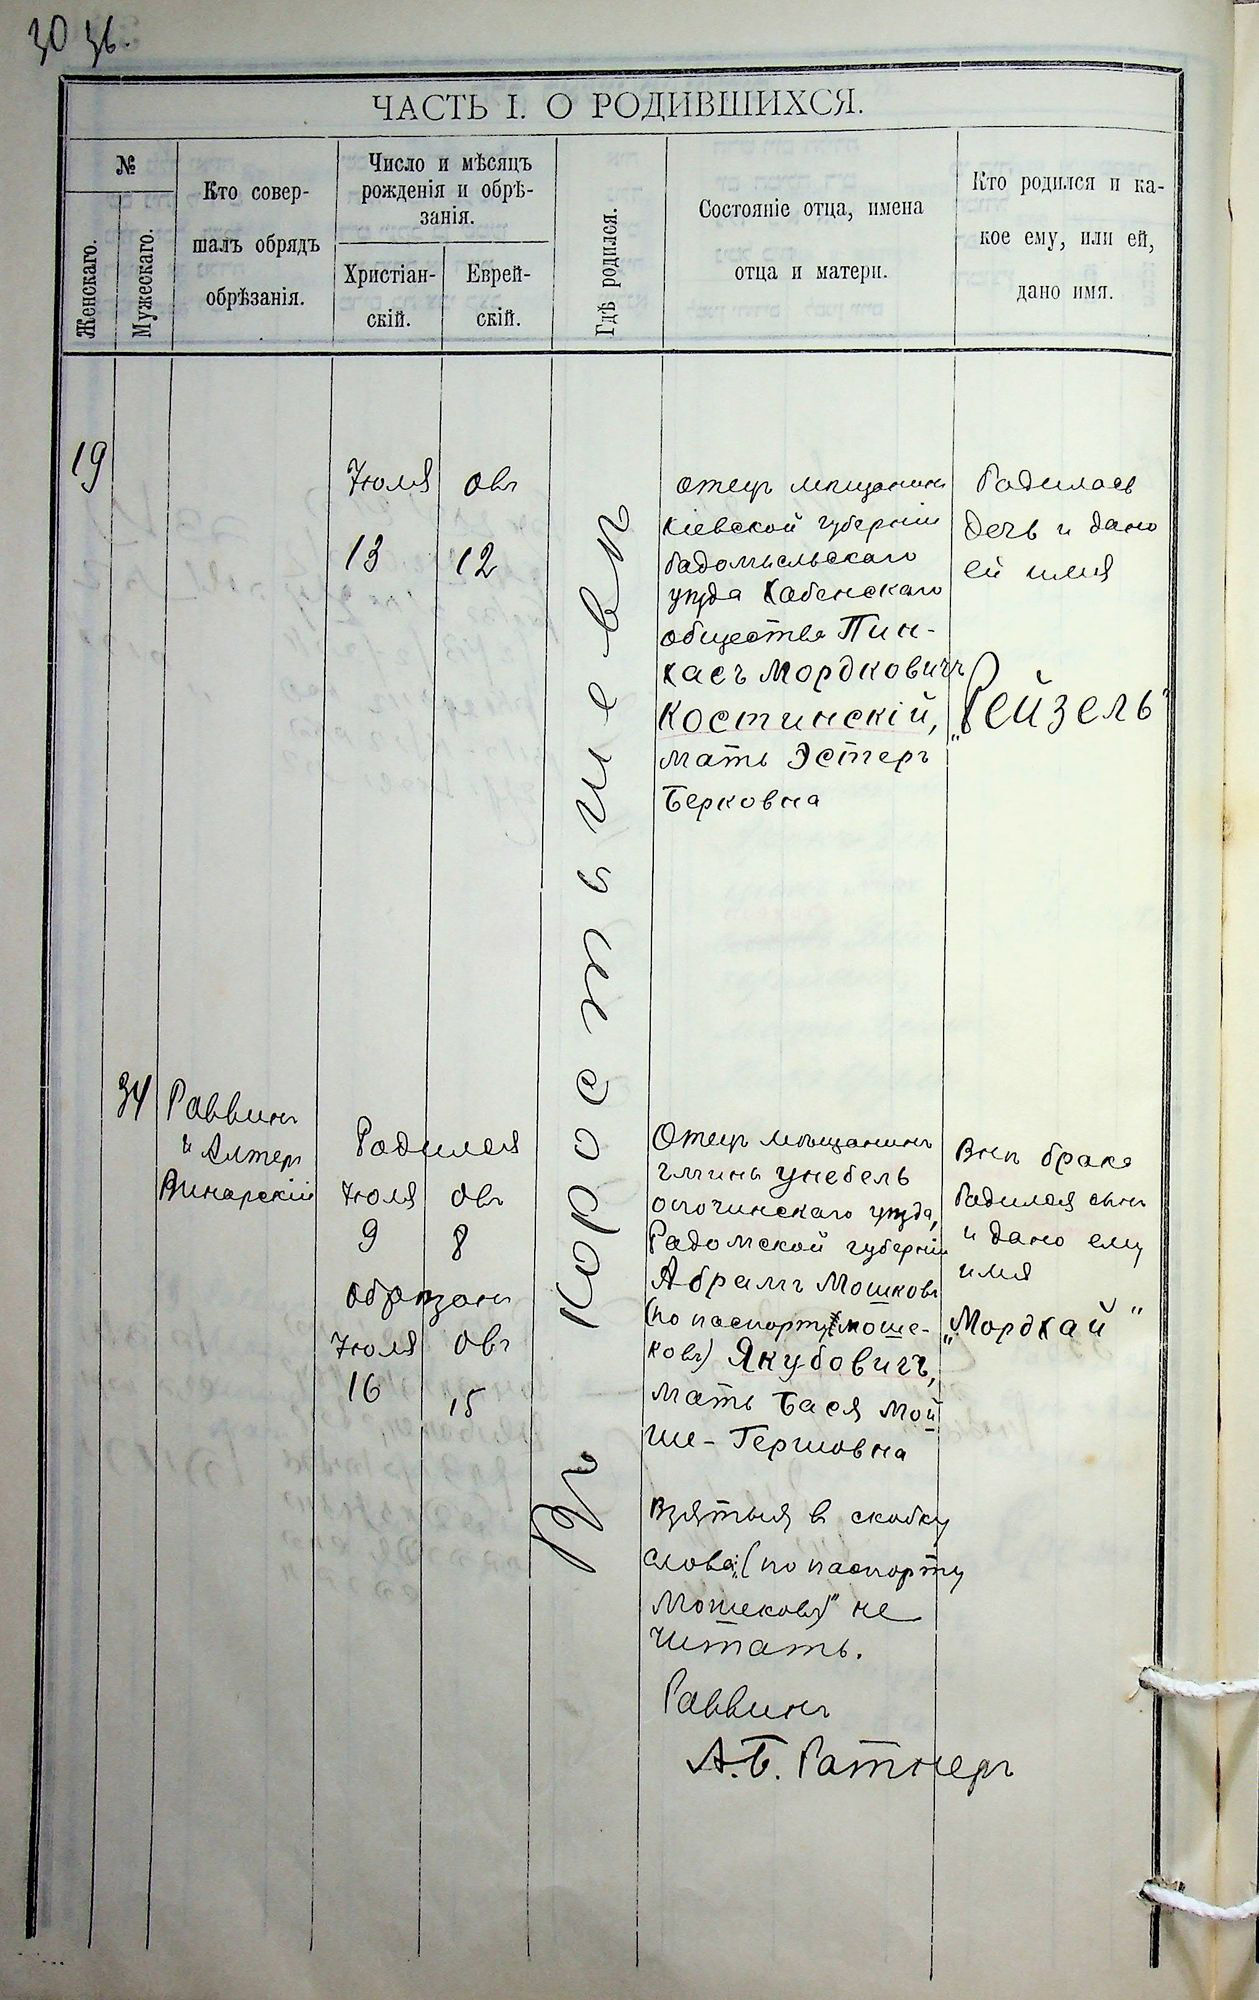 30 36.
ЧАСТЬ I. О РОДИВШИХСЯ.
№
Женскаго.
Мужескаго.
Кто совер-
шалъ обрядъ
обрѣзанія.
Число и мѣсяцъ
рожденія и обрѣ-
занія.
Христіан-
скій.
Еврей-
скій.
Гдѣ родился.
Состояніе отца, имена
отца и матери.
Кто родился и ка-
кое ему, или ей,
дано имя.
19
Іюля
13
Овъ
12
Въ Коростышевѣ
Отецъ мѣщанинъ
Кіевской губерніи
Радомысльскаго
уѣзда Хабенскаго
общества Пин-
хасъ Мордковичъ
Костинскій,
мать Эстеръ
Берковна
Родилась
дочь и дано
ей имя
„Рейзель"
34
Раввинъ
и Алтеръ
Винарскій
Родился
Іюля Овъ
9 8
обрѣзанъ
Іюля Овъ
16 15
Отецъ мѣщанинъ
гмины
опочинскаго уѣзда,
Радомской губерніи
Абрамъ Мошковъ
(по паспорту Моше-
ковъ) Якубовичъ,
мать Бася Мой
ше-Гершовна
Взятыя в скобку
слова „(по паспорту
Мошековъ)" не
читать.
Раввинъ
А.Б. Ратнеръ
Внѣ брака
родился сынъ
и дано ему
имя
„Мордхай"